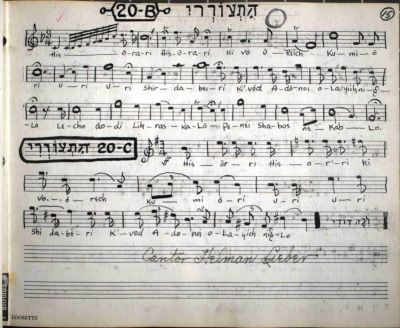 20-B התעוררי
15
His - o-ra-ri His-o-ra-ri Ki vo o - Reich Ku-mi - o
ri u-ri u-ri Shir - da - be-ri K'vod A-do-noi o-La-yich ni-g-
Lo Le-cho do-di Lik-ras - Ka-Lo P'-nei Sha-bos ne - Kab - Lo.
התעוררי 20-C His - ōr-ri His-o-r'-ri Ki
vo - ō - rech Ku - mi ō ri u - ri u - ri
Shi da-bē - ri K' - vod A - do-noi o La-yich nig-Lo לכה דודי
Cantor Helman Lieber
LOOSETTE